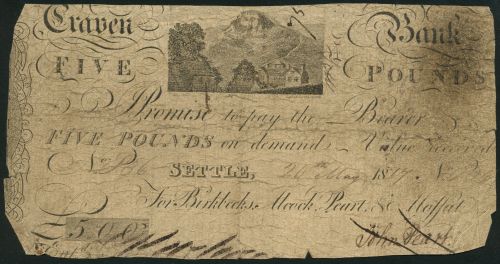 Craven Bank
FIVE POUNDS
I Promise to pay the Bearer
FIVE POUNDS on demand Value received
No SETTLE, 20th May 1817 No
For Birkbecks, Alcock, Peart, & Moffat,
£500
John Peart